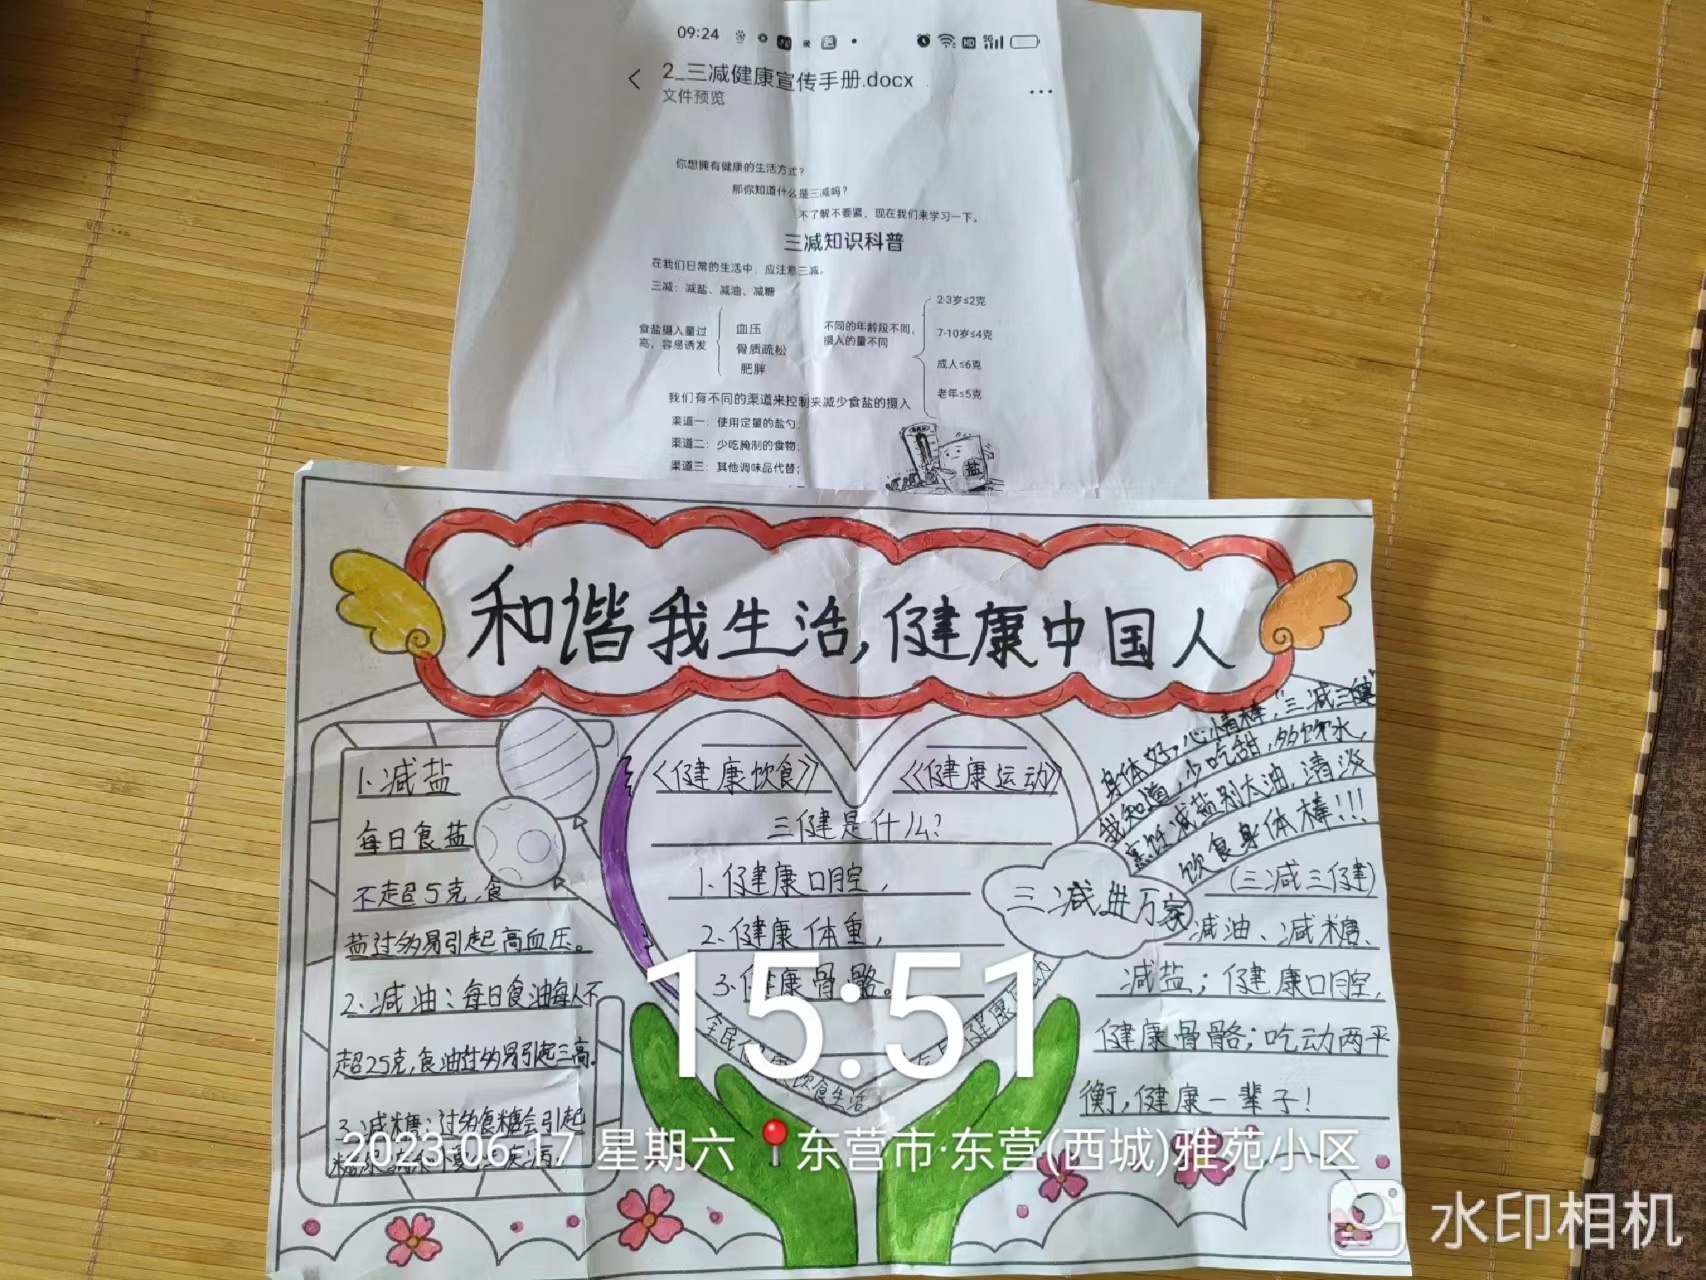 09:24
2_三减健康宣传手册.docx
文件预览
你想拥有健康的生活方式?
那你知道什么是三减吗?
不了解不要紧、现在我们来学习一下。
三减知识科普
在我们日常的生活中，应注意三减。
三减：减盐、减油、减糖
食盐摄入量过
高、容易诱发
血压
骨质疏松
肥胖
不同的年龄段不同，
摄入的量不同
2-3岁≤2克
7-10岁≤4克
成人≤6克
老年≤5克
我们有不同的渠道来控制来减少食盐的摄入
渠道一：使用定量的盐勺；
渠道二：少吃腌制的食物；
渠道三：其他调味品代替；
盐
和谐我生活,健康中国人
1.减盐
每日食盐
不走超5克,食
盐过多易引起高血压。
2.减油:每日食油每人不
超25克,食油过多易引起三高。
3.减糖:过多食糖会引起
《健康饮食》
《健康运动》
三健是什么?
1.健康口腔,
2.健康体重,
3.健康骨骼。
全民健康饮食生活
身体好,心情棒,"三减三健"
我知道,少吃甜,多饮水,
烹饪减盐别太油,清淡
饮食身体棒!!!
三减进万家
(三减三健)
减油、减糖、
减盐;健康口腔,
健康骨骼;吃动两平
衡,健康一辈子!
15:51
2023.06.17 星期六 东营市·东营(西城)雅苑小区
水印相机